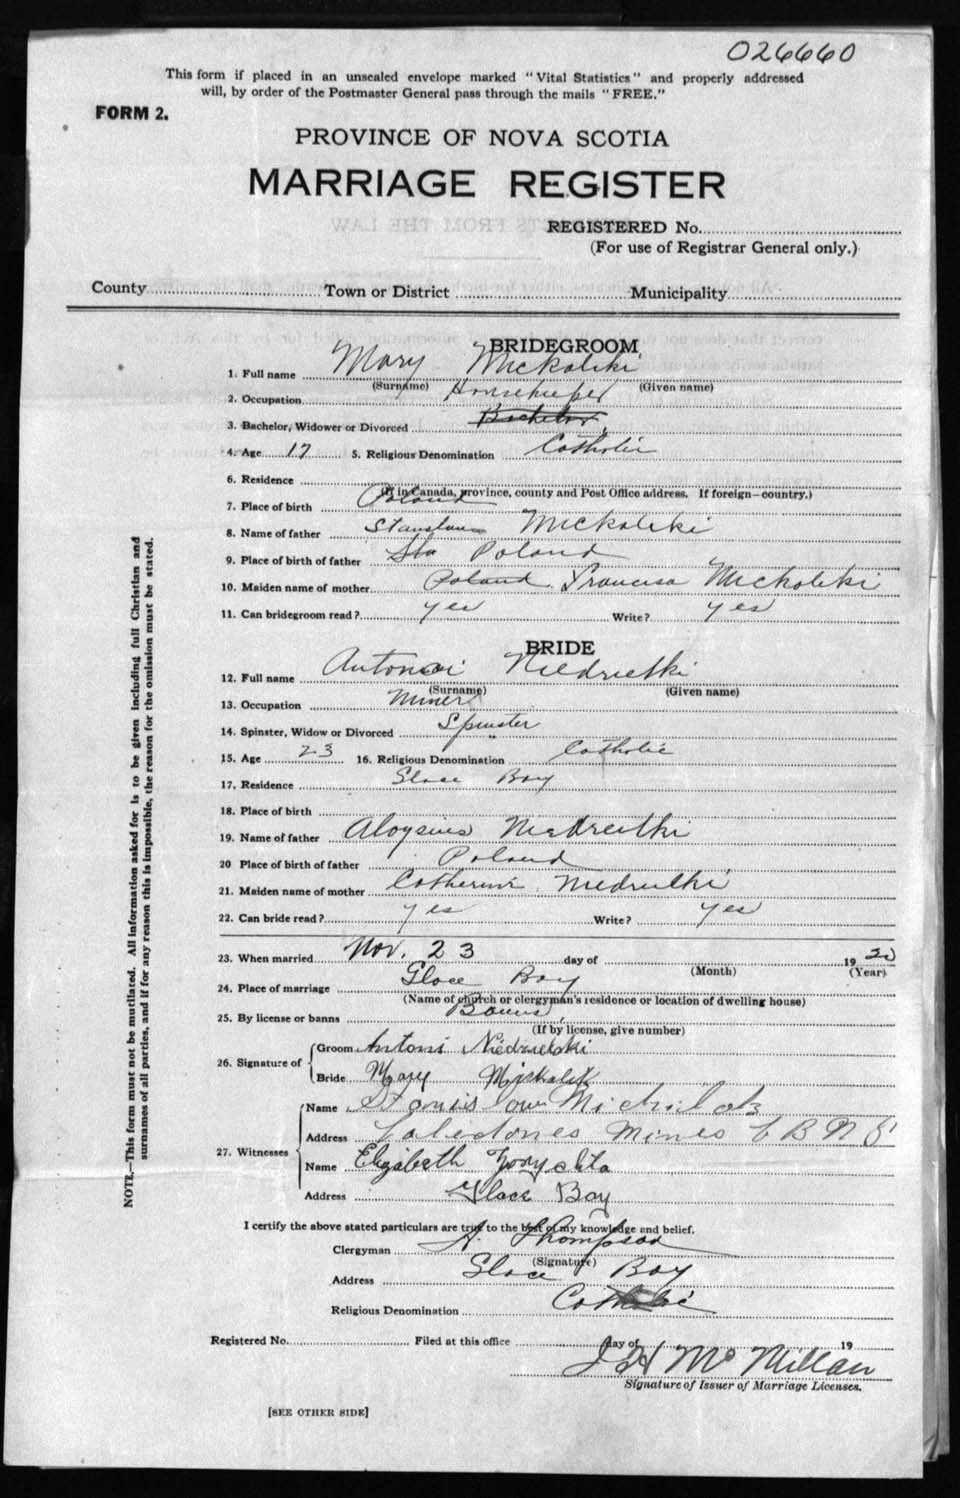 026660
This form if placed in an unsealed envelope marked "Vital Statistics" and properly addressed
will, by order of the Postmaster General pass through the mails "FREE."
FORM 2.
PROVINCE OF NOVA SCOTIA
MARRIAGE REGISTER
REGISTERED No.
(For use of Registrar General only.)
County Town or District Municipality
BRIDEGROOM
1. Full name Mary Mickolski
(Surname) (Given name)
2. Occupation Housekeeper
3. Bachelor, Widower or Divorced Bachelor
4. Age 17 5. Religious Denomination Catholic
6. Residence
(If in Canada, province, county and Post Office address. If foreign—country.)
7. Place of birth Poland
8. Name of father Stanslaus Mickolski
9. Place of birth of father Poland
10. Maiden name of mother Poland Francisa Mickolski
11. Can bridegroom read? yes Write? yes
BRIDE
12. Full name Antonoi Niedzielski
(Surname) (Given name)
13. Occupation Miner
14. Spinster, Widow or Divorced Spinster
15. Age 23 16. Religious Denomination Catholic
17. Residence Glace Bay
18. Place of birth
19. Name of father Aloysius
20 Place of birth of father Poland
21. Maiden name of mother Catherine
22. Can bride read? yes Write? yes
23. When married Nov. 23 day of 1920
(Month) (Year)
24. Place of marriage Glace Bay
(Name of church or clergyman's residence or location of dwelling house)
25. By license or banns Banns
(If by license, give number)
26. Signature of
Groom Antoni Niedzielski
Bride Mary
27. Witnesses
Name Stanislaw
Address Caledonea Mines C B N S
Name Elizabeth
Address Glace Bay
I certify the above stated particulars are true to the best of my knowledge and belief.
Clergyman A. Thompson
(Signature)
Address Glace Bay
Religious Denomination Catholic
Registered No. Filed at this office day of 19
J H McMillan
Signature of Issuer of Marriage Licenses.
[SEE OTHER SIDE]
NOTE.—This form must not be mutilated. All information asked for is to be given including full Christian and
surnames of all parties, and if for any reason this is impossible, the reason for the omission must be stated.